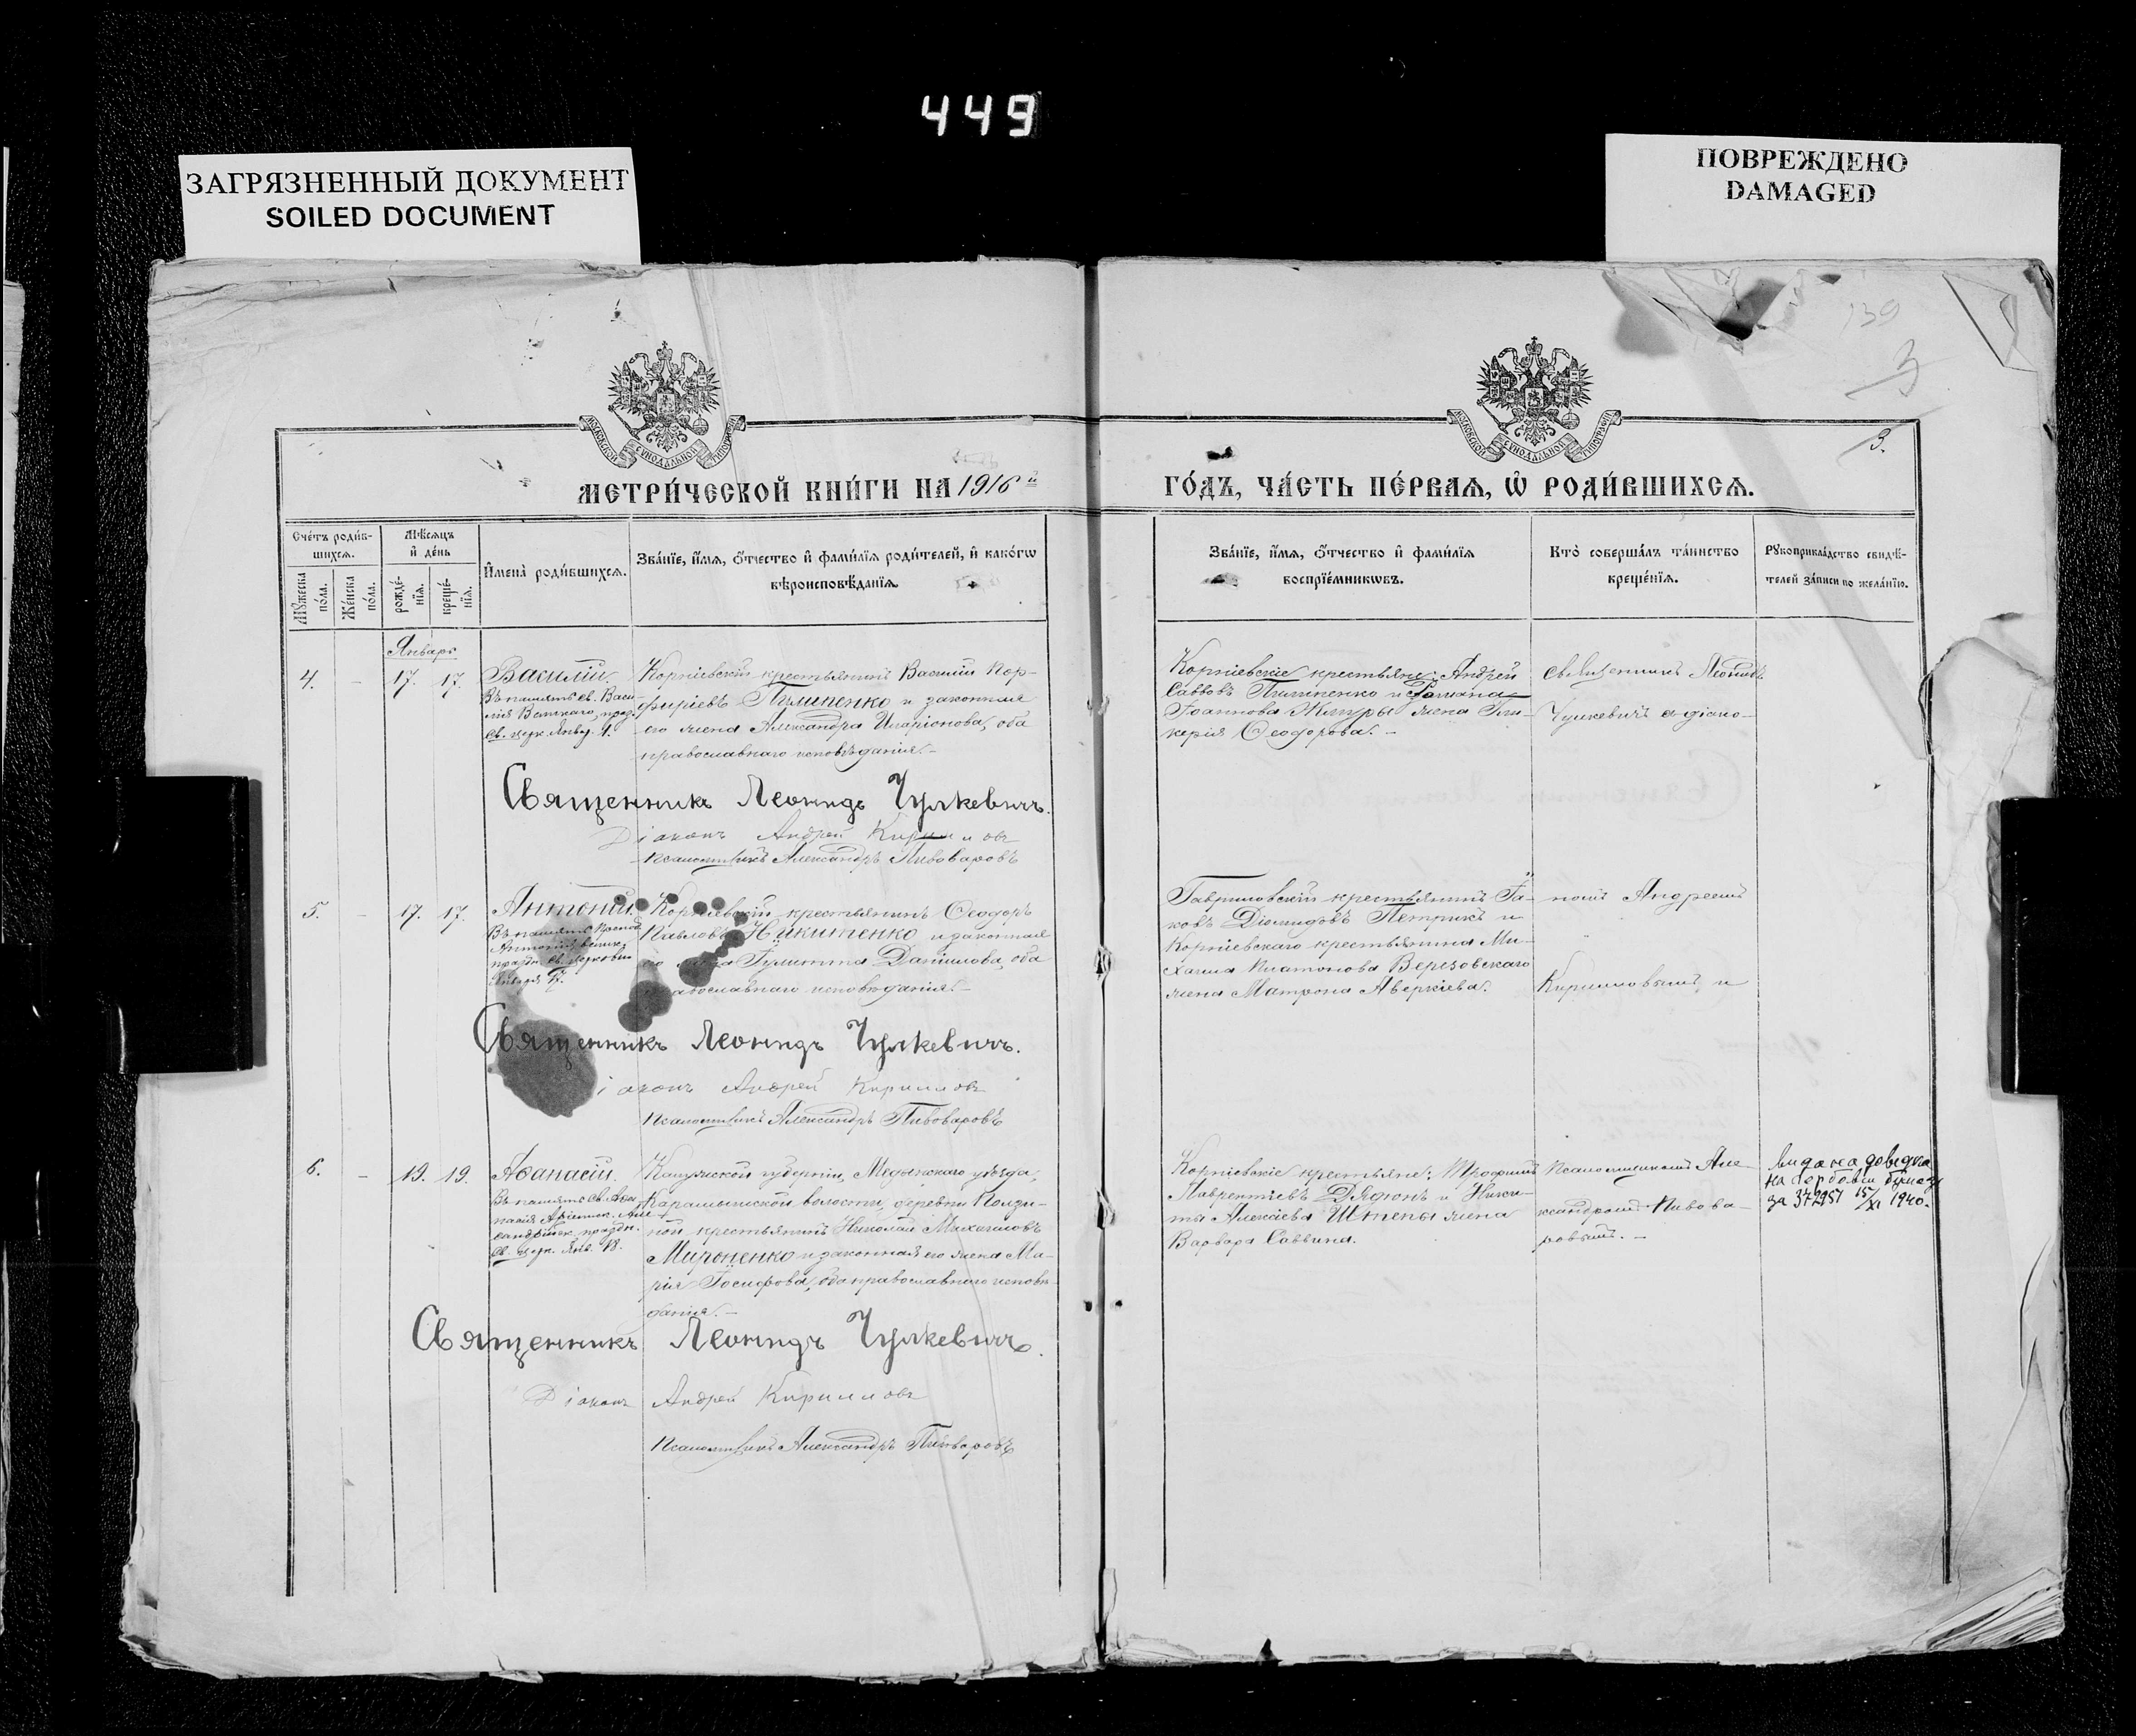 449
ЗАГРЯЗНЕННЫЙ ДОКУМЕНТ
SOILED DOCUMENT
ПОВРЕЖДЕНО
DAMAGED
139
3
3.
МОСКОВСКОЙ СѴНОДАЛЬНОЙ ТИПОГРАФІИ
МОСКОВСКОЙ СѴНОДАЛЬНОЙ ТИПОГРАФІИ
МЕТРИ́ЧЕСКОЙ КНИ́ГИ НА 1916 й
ГО́ДЪ, ЧА́СТЬ ПЕ́РВАѦ, Ѡ҆ РОДИ́ВШИХСѦ.
Сче́тъ роди́в-
шихсѧ.
Мꙋ́жеска
по́ла.
Же́нска
по́ла.
Мѣ́сѧцъ
и҆ де́нь
рожде́-
нїѧ.
креще́-
нїѧ.
И҆мена̀ роди́вшихсѧ.
Зва́нїе, и҆́мѧ, ѻ҆́тчество и҆ фами́лїѧ роди́телей, и҆ како́гѡ
вѣроисповѣ́данїѧ.
Зва́нїе, и҆́мѧ, ѻ҆́тчество и҆ фами́лїѧ
воспрїе́мникѡвъ.
Кто̀ соверша́лъ та́инство
креще́нїѧ.
Рꙋкоприкла́дство свидѣ́-
телей за́писи по жела́нїю.
Январь
4. - 17. 17.
Василій.
Въ память св. Васи-
лія Великаго, празд.
св. церк. Янв. 1.
Корніевскій крестьянинъ Василій Пор-
фиріевъ Пилипенко и законная
его жена Александра Иларіонова, оба
православнаго исповѣданія.-
Корніевскіе крестьяне: Андрей
Саввовъ Пилипенко и Романа
Іоаннова жена Гли-
керія Ѳеодорова.-
Священникъ Леонидъ
Чулкевичъ съ діако-
Священникъ Леонидъ Чулкевичъ.
Діаконъ Андрей Кирилловъ
Псаломщикъ Александръ Пивоваровъ
5. - 17. 17.
Антоній.
Въ память Препод.
Антонія велик.
праздн. св. церковію
Января 17.
Корніевскій крестьянинъ Ѳеодоръ
Павловъ Никитенко и законная
его жена Іулитта Даніилова, оба
православнаго исповѣданія.-
Гавриловскій крестьянинъ Іа-
ковъ Діомидовъ Петрикъ и
Корніевскаго крестьянина Ми-
хаила Платонова Березовскаго
жена Матрона Аверкіева.
номъ Андреемъ
Кирилловымъ и
Священникъ Леонидъ Чулкевичъ.
іаконъ Андрей Кирилловъ
Псаломщикъ Александръ Пивоваровъ
6. - 19. 19.
Аѳанасій.
Въ память Св. Аѳа-
насія Архіеписк. Алек-
сандрійск. праздн.
Св. церк. Янв. 18.
Калужской губерніи, Медынскаго уѣзда,
Карамышской волости, деревни
крестьянинъ Николай Михаиловъ
Мироненко и законная его жена Ма-
рія Іосифова, оба православнаго исповѣ-
данія.-
Корніевскіе крестьяне: Трофимъ
Лаврентіевъ Дядюнъ и Ники-
ты Алексіева Шепы жена
Варвара Саввина.
Псаломщикомъ Але-
ксандромъ Пивова-
ровымъ.-
Видана довідка
на гербовім бумазі
за 372951 15/XI 1940.
Священникъ Леонидъ Чулкевичъ.
Діаконъ Андрей Кирилловъ
Псаломщикъ Александръ Пивоваровъ